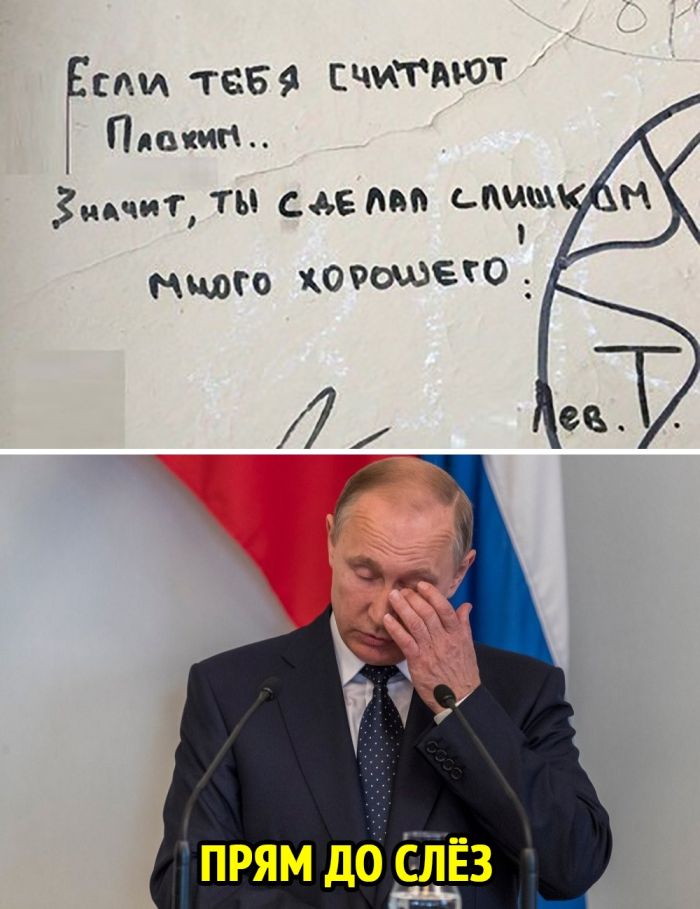 Если тебя считают
Плохим..
Значит, ты сделал слишком
много хорошего!
Лев. Т.
ПРЯМ ДО СЛЁЗ